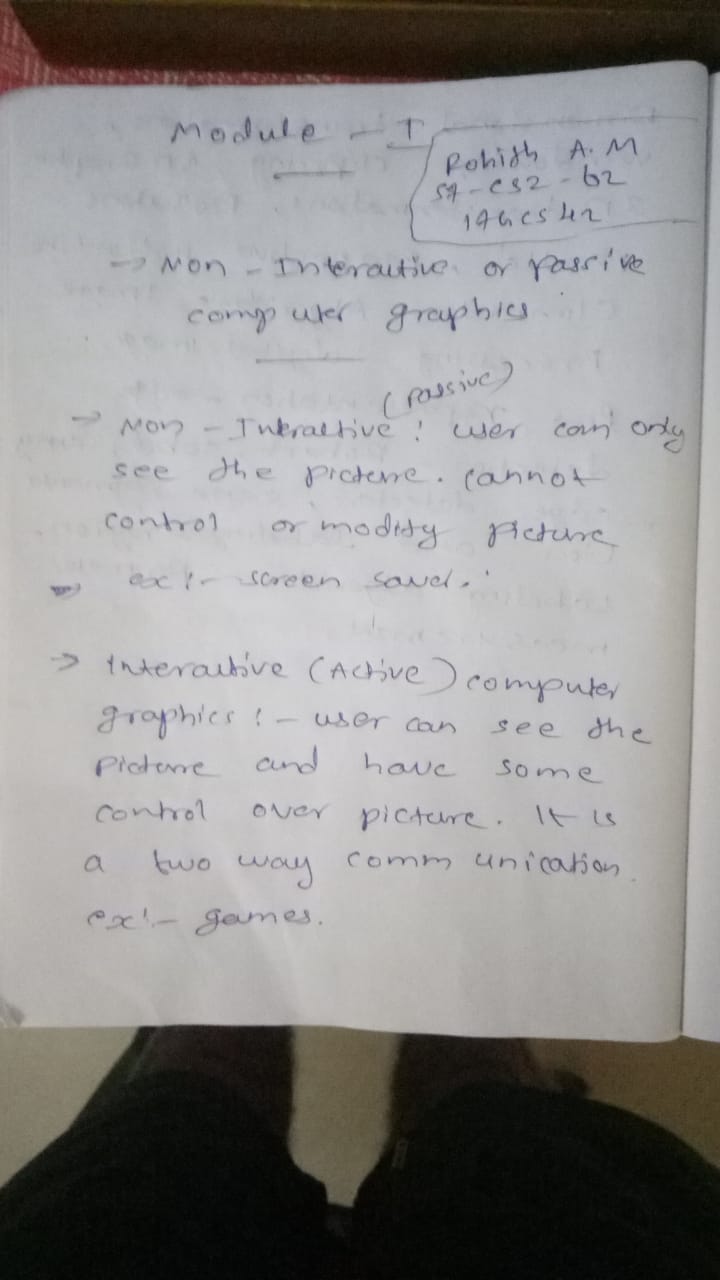 Module - I
Rohith A. M
S7 - CS2 - 62
→ Non - Interactive or Passive
computer graphics
(passive)
→ Non - Interactive : user can only
see the picture. cannot
control or modify picture
ex :- screen
→ Interactive (Active) computer
graphics :- user can see the
picture and have some
control over picture. It is
a two way communication.
ex :- games.